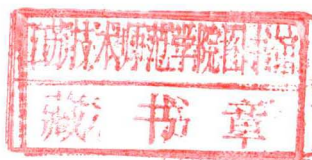 江苏技术师范学院图书馆
藏书章